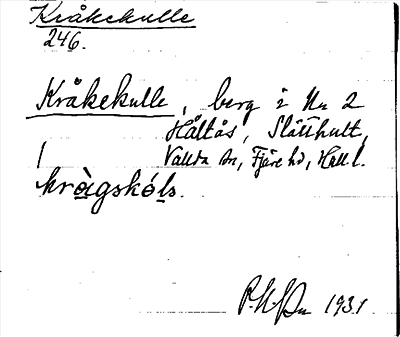 Kråkekulle
246.
Kråkekulle, berg i Nr 2
Håltås, Slätthult,
Vallda sn, Fjäre hd, Hall.
kràgskóls.
1931